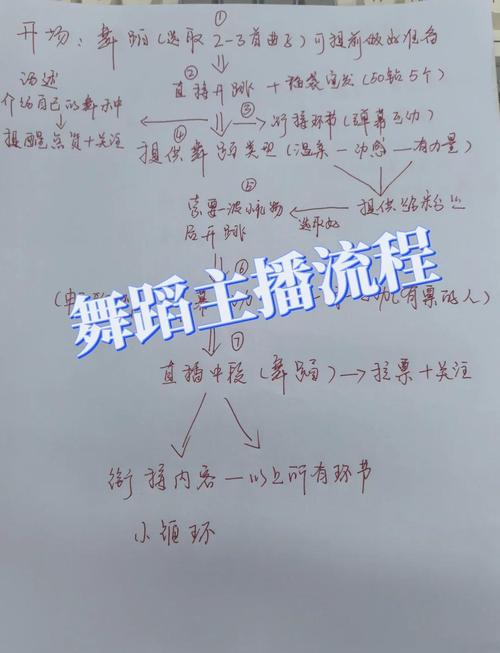 ①
开场：舞蹈（选取2-3首曲子）可提前做好准备
② 直接开跳 + 福袋宣发（50钻5个）
话述
介绍自己的舞种
提醒点赞+关注
③ 衔接环节（弹幕互动）
④ 提供舞蹈类型（温柔—动感—有力量）
⑤
索要一波小礼物 选取好 提供给粉丝
后开跳
⑥
有票的人）
舞蹈主播流程
⑦
直播中段（舞蹈）→拉票+关注
衔接内容—以上所有环节
小循环